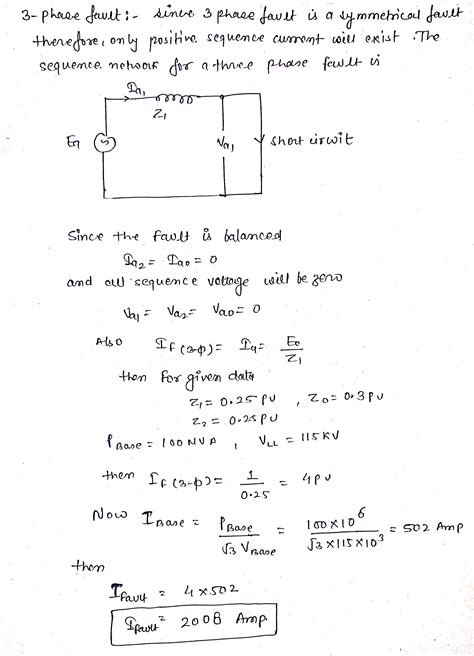 3-phase fault :- since 3 phase fault is a symmetrical fault
therefore, only positive sequence current will exist. The
sequence network for a three phase fault is
Ia1
Z1
Ea
Va1
short circuit
Since the fault is balanced
Ia2 = Ia0 = 0
and all sequence voltage will be zero
Va1 = Va2 = Va0 = 0
Also If(3-φ) = Ia = Ea/Z1
then for given data
Z1 = 0.25 PU , Z0 = 0.3 PU
Z2 = 0.25 PU
PBase = 100 MVA , VLL = 115 KV
then If(3-φ) = 1/0.25 = 4 PU
Now IBase = PBase/√3 VBase = 100×10^6/√3×115×10^3 = 502 Amp
then
Ifault = 4×502
Ifault = 2008 Amp